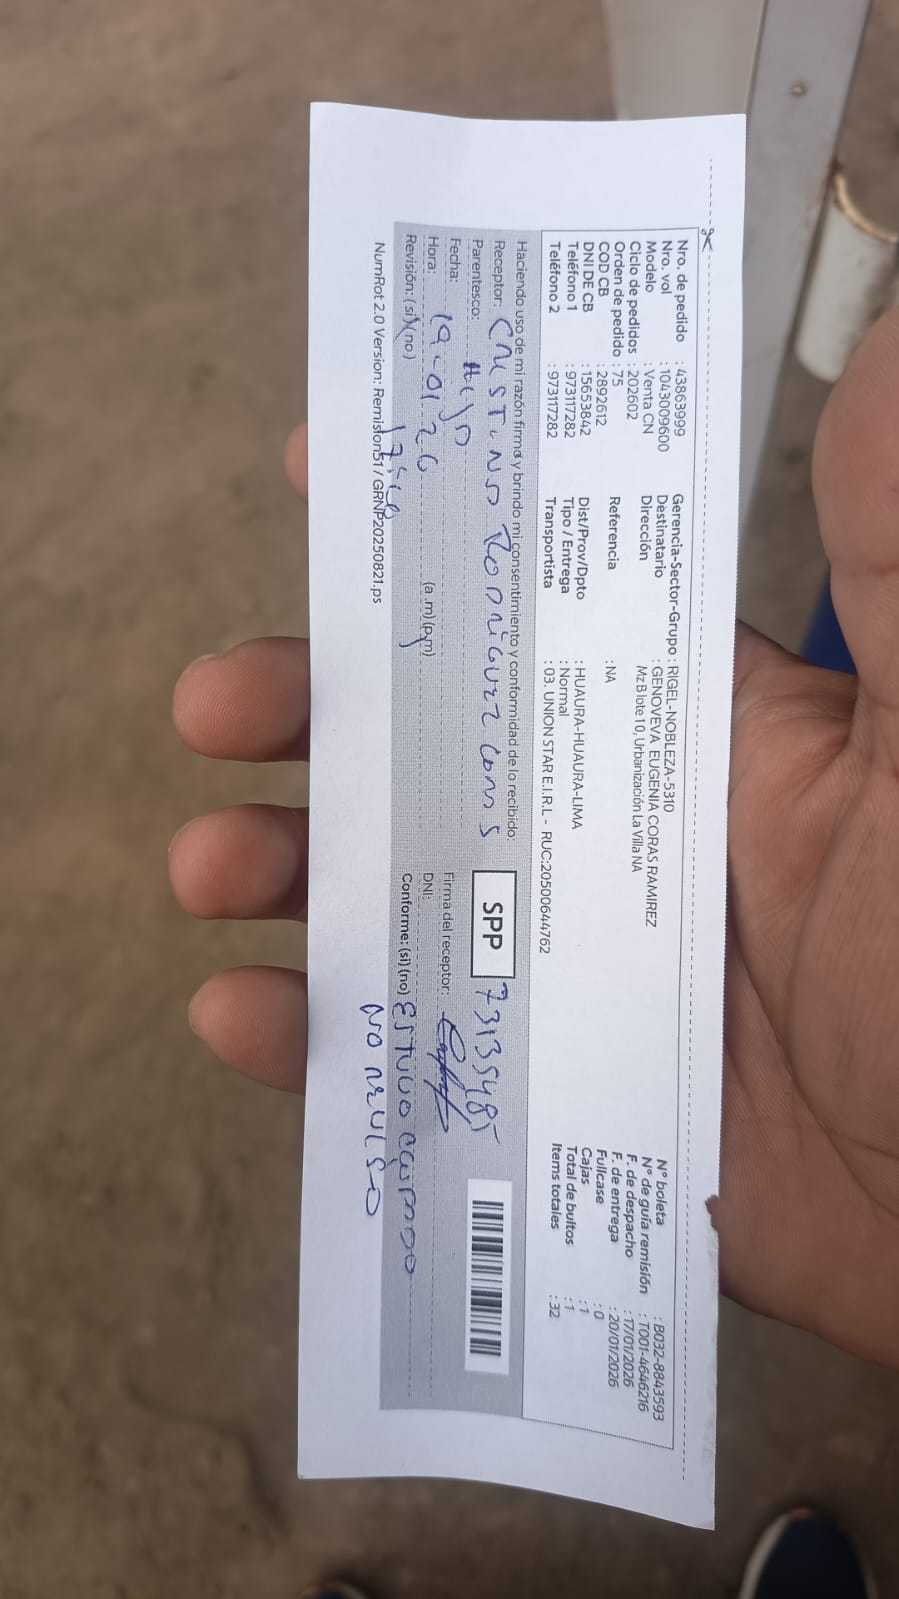 Nro. de pedido : 43863999
Nro. vol : 1043009600
Modelo : Venta CN
Ciclo de pedidos : 202602
Orden de pedido : 75
COD CB : 2892612
DNI DE CB : 15653842
Teléfono 1 : 973117282
Teléfono 2 : 973117282
Gerencia-Sector-Grupo : RIGEL-NOBLEZA-5310
Destinatario : GENOVEVA EUGENIA CORAS RAMIREZ
Dirección Mz B lote 10, Urbanización La Villa NA
Referencia : NA
Dist/Prov/Dpto : HUAURA-HUAURA-LIMA
Tipo / Entrega : Normal
Transportista : 03. UNION STAR E.I.R.L - RUC:20500644762
N° boleta : B032-8843593
N° de guía remisión : T001-4646216
F. de despacho : 17/01/2026
F. de entrega : 20/01/2026
Fullcase : 0
Cajas : 1
Total de bultos : 1
Items totales : 32
Haciendo uso de mi razón firmo y brindo mi consentimiento y conformidad de lo recibido:
Receptor: CRISTINO RODRIGUEZ CORAS
SPP
73135485
Parentesco: HIJO
Fecha: 19-01-26
Hora: (a .m) (p.m)
Revisión: (si) (no)
Firma del receptor:
DNI:
Conforme: (si) (no) ESTUVO
NO
NumRot 2.0 Version: Remision51 / GRNP20250821.ps